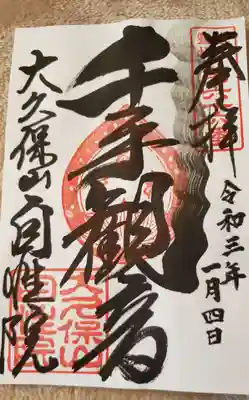 奉拝
令和三年
一月四日
千手観音
大久保山自性院
大久保山